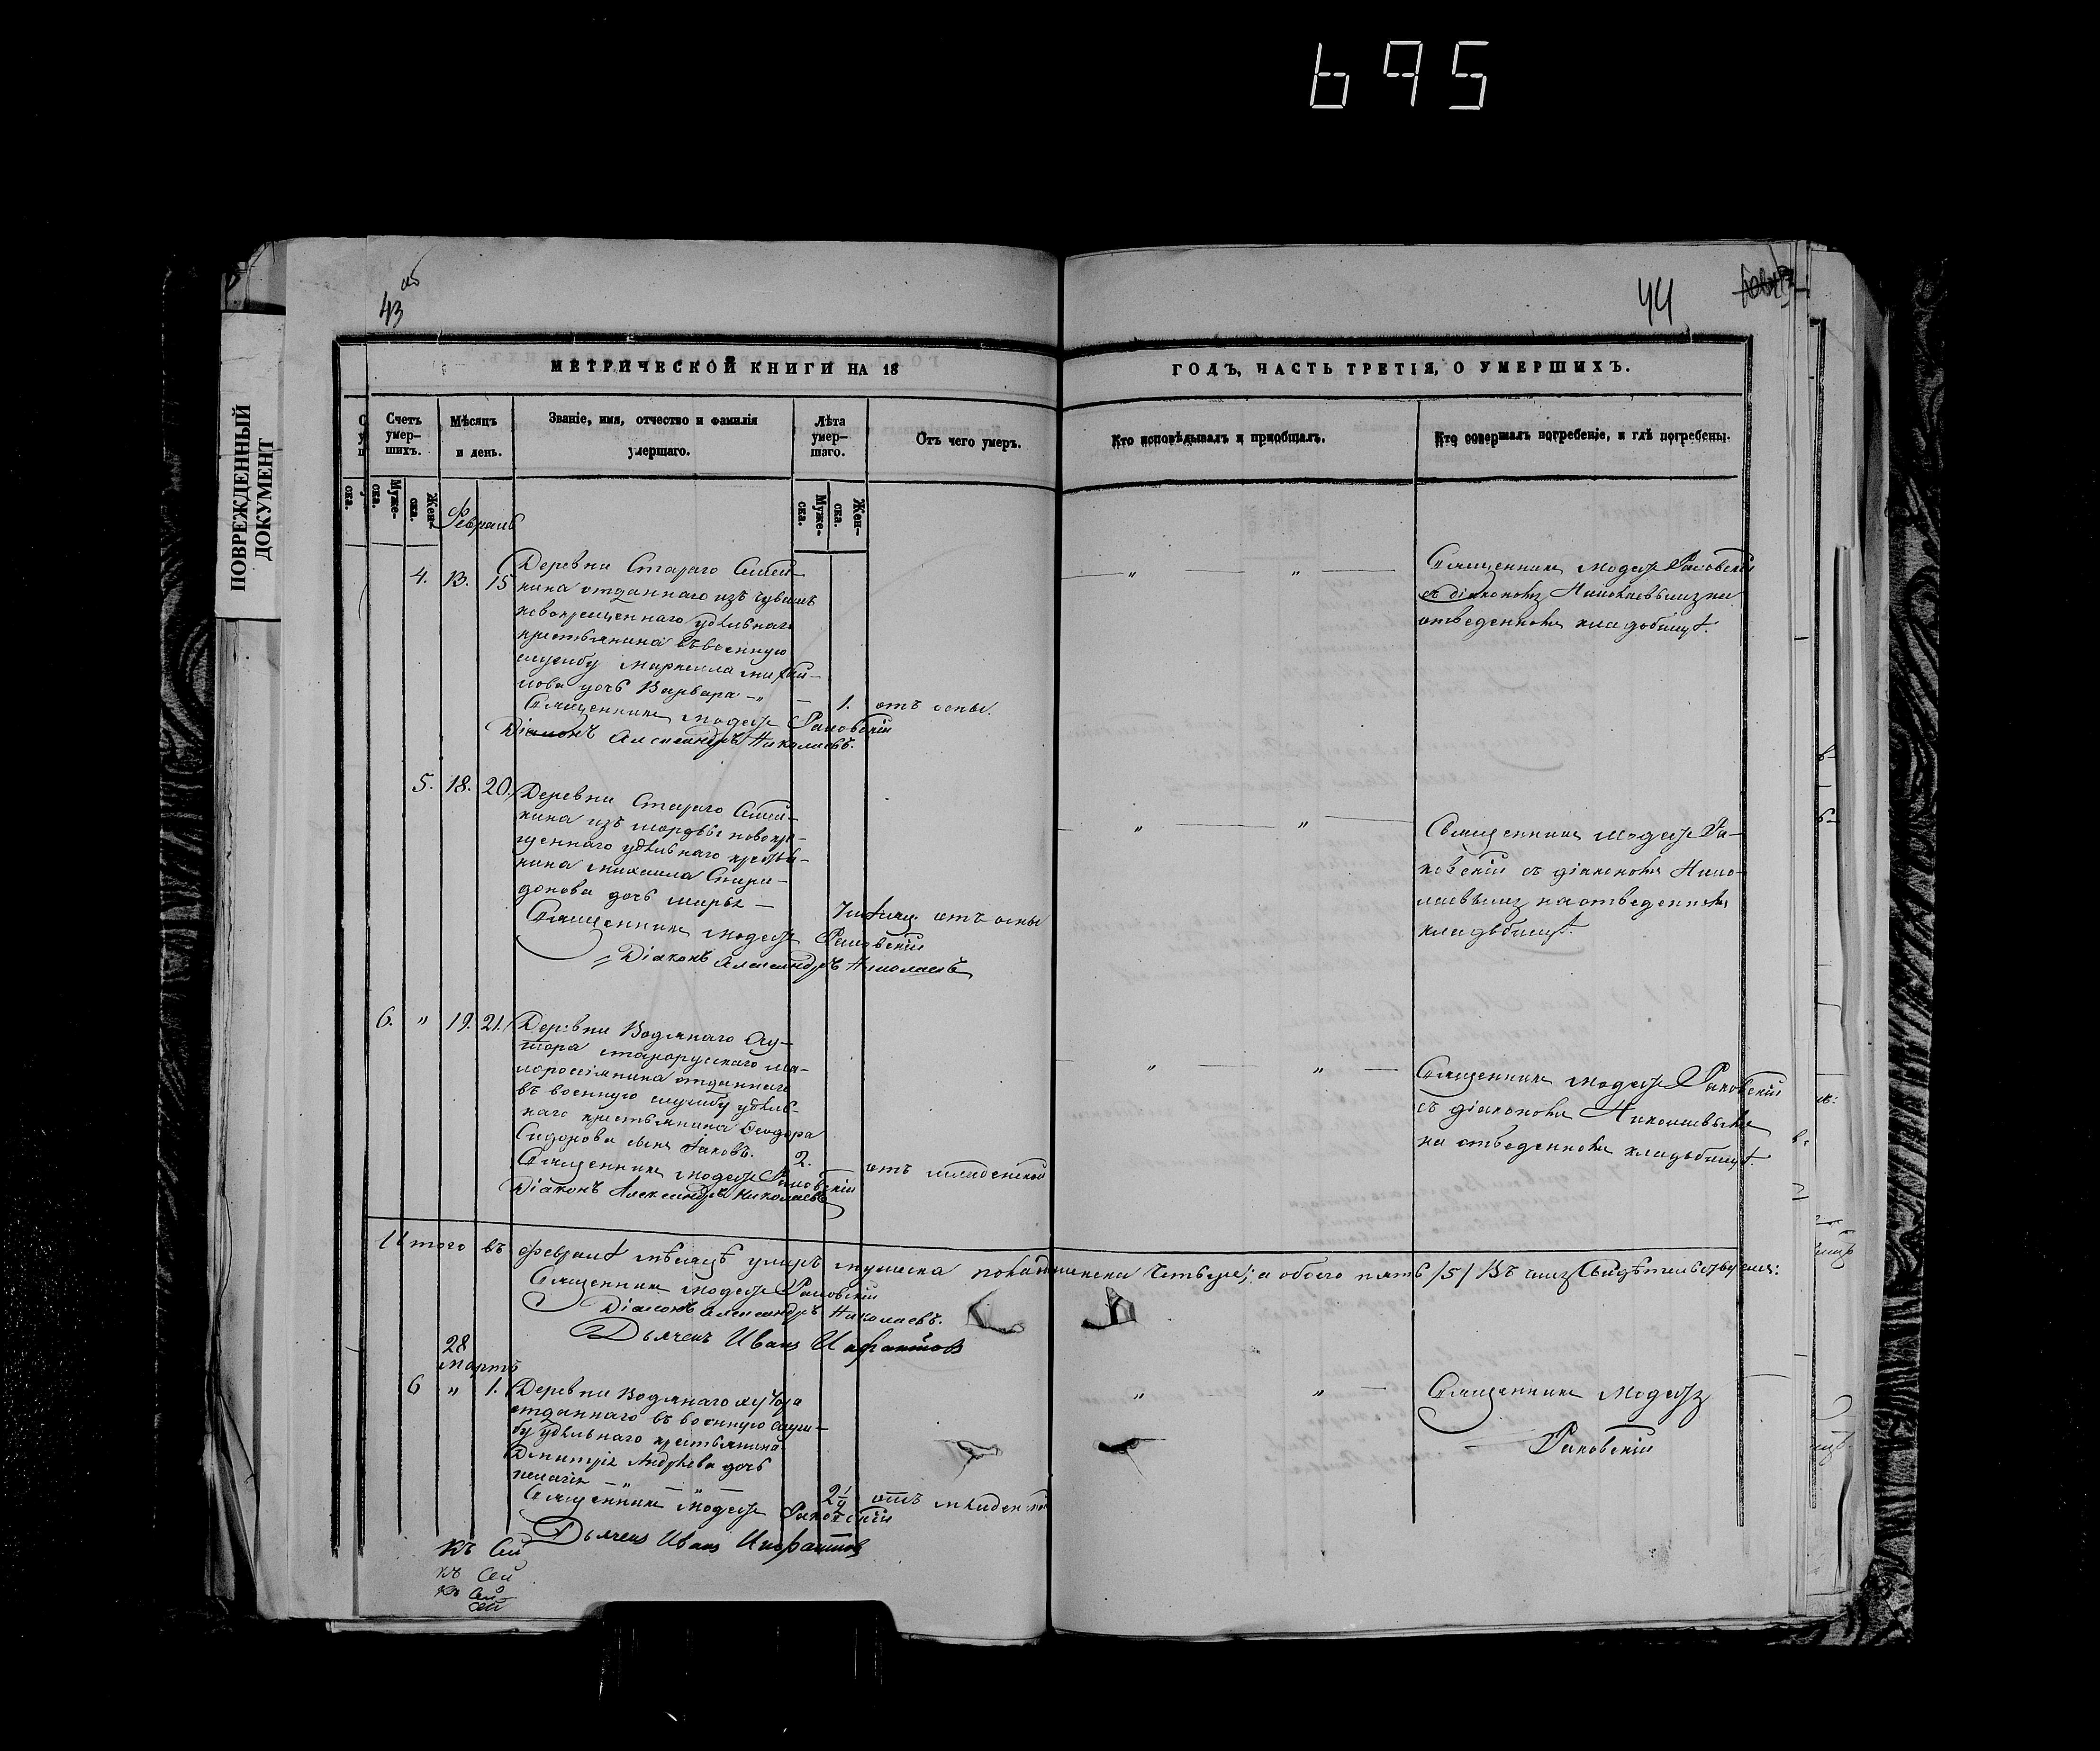 695
43 об
44
ПОВРЕЖДЕННЫЙ
ДОКУМЕНТ
МЕТРИЧЕСКОЙ КНИГИ НА 18
ГОДЪ, ЧАСТЬ ТРЕТІЯ, О УМЕРШИХЪ.
Счетъ умер-шихъ.
Мѣсяцъ и день.
Званіе, имя, отчество и фамилія умершаго.
Лѣта умер-шаго.
Отъ чего умеръ.
Кто исповѣдывалъ и пріобщалъ.
Кто совершалъ погребеніе, и гдѣ погребены.
Муже-ска.
Жен-ска.
Муже-ска.
Жен-ска.
Февраль
4. 13. 15
Деревни Стараго Семей-
кина отданнаго изъ чувашъ
новокрещеннаго удѣльнаго
крестьянина въ военную
службу Маркелла Михай-
лова дочь Варвара
1. отъ оспы.
Священникъ Модестъ Раковскій
Діаконъ Александръ Николаевъ.
" "
Священникъ Модестъ Раковскій
съ діакономъ Николаевымъ на
отведенномъ кладбищѣ.
5. 18. 20.
Деревни Стараго Семей-
кина изъ мордвы новокре-
щеннаго удѣльнаго крестья-
нина Михаила Спири-
донова дочь Марья
отъ оспы
Священникъ Модестъ Раковскій
Діаконъ Александръ Николаевъ
" "
Священникъ Модестъ Ра-
ковскій съ діакономъ Нико-
лаевымъ на отведенномъ
кладбищѣ.
6. " 19. 21.
Деревни Водянаго Ху-
тора старорусскаго ма-
лороссіянина отданнаго
въ военную службу удѣль-
наго крестьянина Ѳеодора
Сидорова сынъ Іаковъ.
2. отъ младенской
Священникъ Модестъ Раковскій
Діаконъ Александръ Николаевъ
" "
Священникъ Модестъ Раковскій
съ діакономъ Николаевымъ
на отведенномъ кладбищѣ.
Итого въ февралѣ мѣсяцѣ умеръ мужеска пола женска четыре; а обоего пять /5/ Въ чемъ свидѣтельствуемъ:
Священникъ Модестъ Раковскій
Діаконъ Александръ Николаевъ.
Дьячекъ Иванъ
28
Мартъ
6 " 1.
Деревни Водянаго хутора
отданнаго въ военную служ-
бу удѣльнаго крестьянина
Димитрія Андреева дочь
Пелагія
2 1/4 отъ младенской
Священникъ Модестъ Раковскій
Дьячекъ Иванъ
" "
Священникъ Модестъ
Раковскій
Къ Сей
къ Сей
къ Сей
Сей